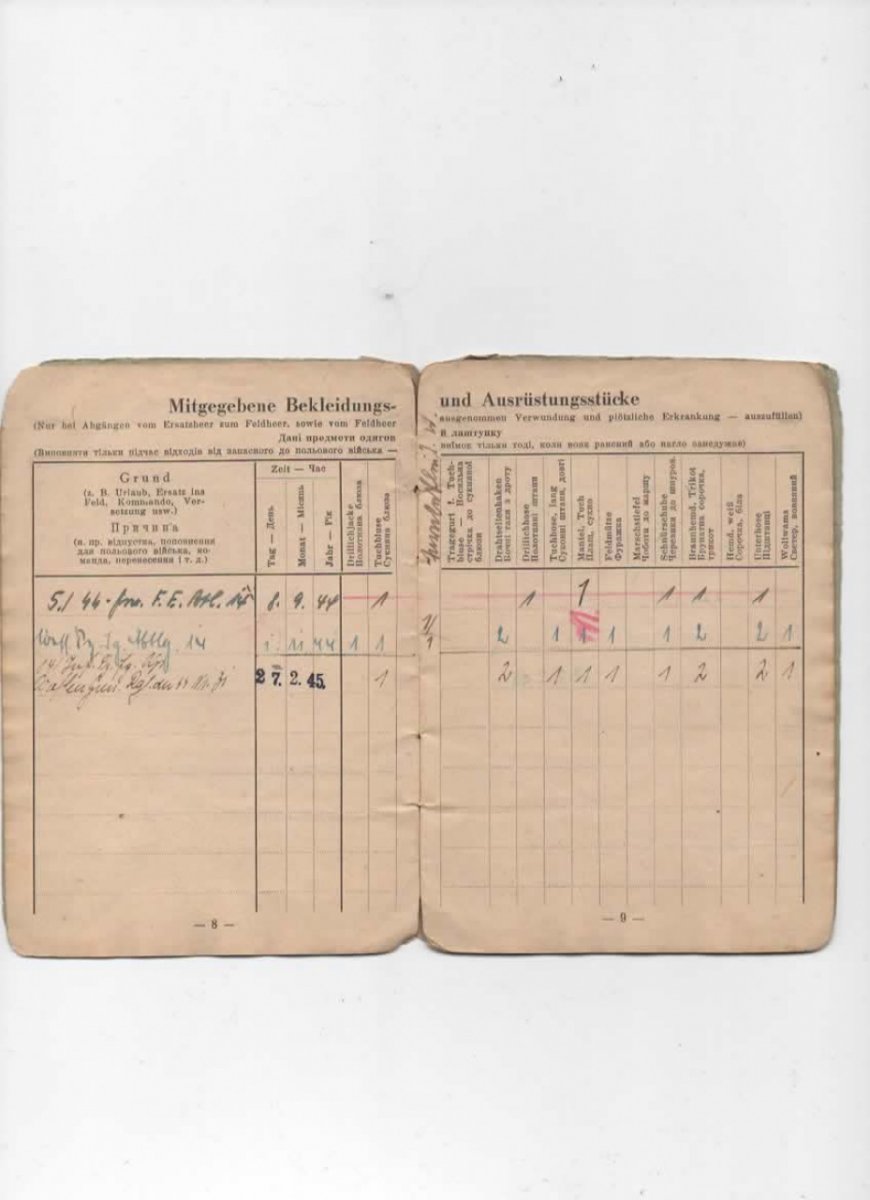 Mitgegebene Bekleidungs-
(Nur bei Abgängen vom Ersatzheer zum Feldheer, sowie vom Feldheer
Дані предмети одягов
(Виповняти тільки підчас відходів від запасного до польового війська —
Grund
(z. B. Urlaub, Ersatz ins
Feld, Kommando, Ver-
setzung usw.)
Причина
(н. пр. відпустка, поповнення
для польового війська, ко-
манда, перенесення і т. д.)
Zeit — Час
Tag — День
Monat — Місяць
Jahr — Рік
Drillichjacke
Полотняна блюза
Tuchbluse
Суконна блюза
5./ F. E. Btl. 14 8. 9. 44 1
14 11 44 1 1
27. 2. 45. 1
— 8 —
und Ausrüstungsstücke
ausgenommen Verwundung und plötzliche Erkrankung — auszufüllen)
й лаштунку
виїмок тільки тоді, коли вояк ранений або нагло занедужав)
Tragegurt f. Tuch-
bluse — Носильна
стрічка до суконної
блюзи
Drahtseitenhaken
Бочні гаки з дроту
Drillichhose
Полотняні штани
Tuchhose, lang
Суконні штани, довгі
Mantel, Tuch
Плащ, сукно
Feldmütze
Фуражка
Marschstiefel
Чоботи до маршу
Schnürschuhe
Черевики до шнуров.
Braunhemd, Trikot
Брунатна сорочка,
трикот
Hemd, weiß
Сорочка, біла
Unterhose
Підштанці
Wollwams
Светер, вовняний
1 1 1 1 1
2 1 1 1 1 2 2 1
2 1 1 1 1 2 2 1
— 9 —